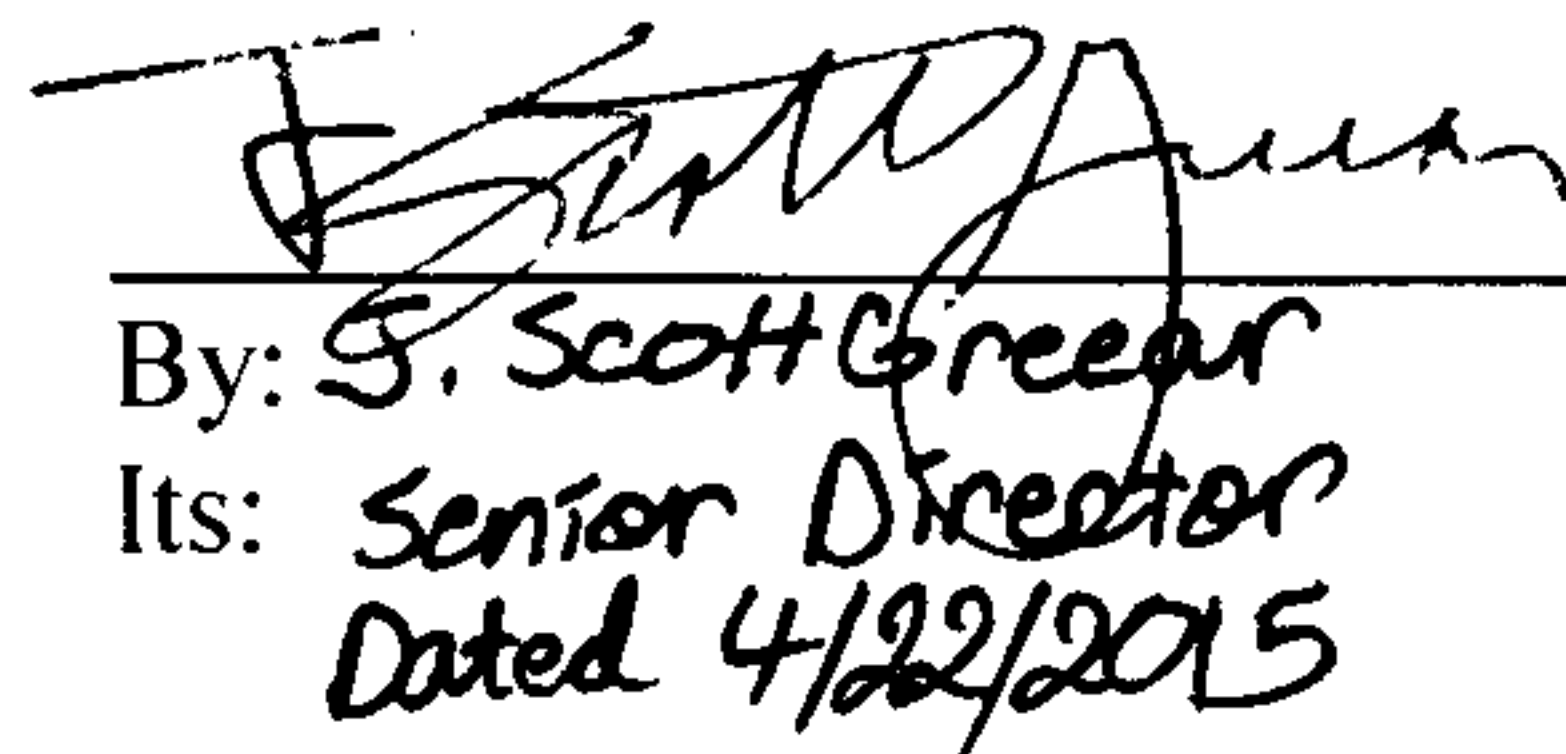 By: J. Scott Greear
Its: Senior Director
Dated 4/22/2015